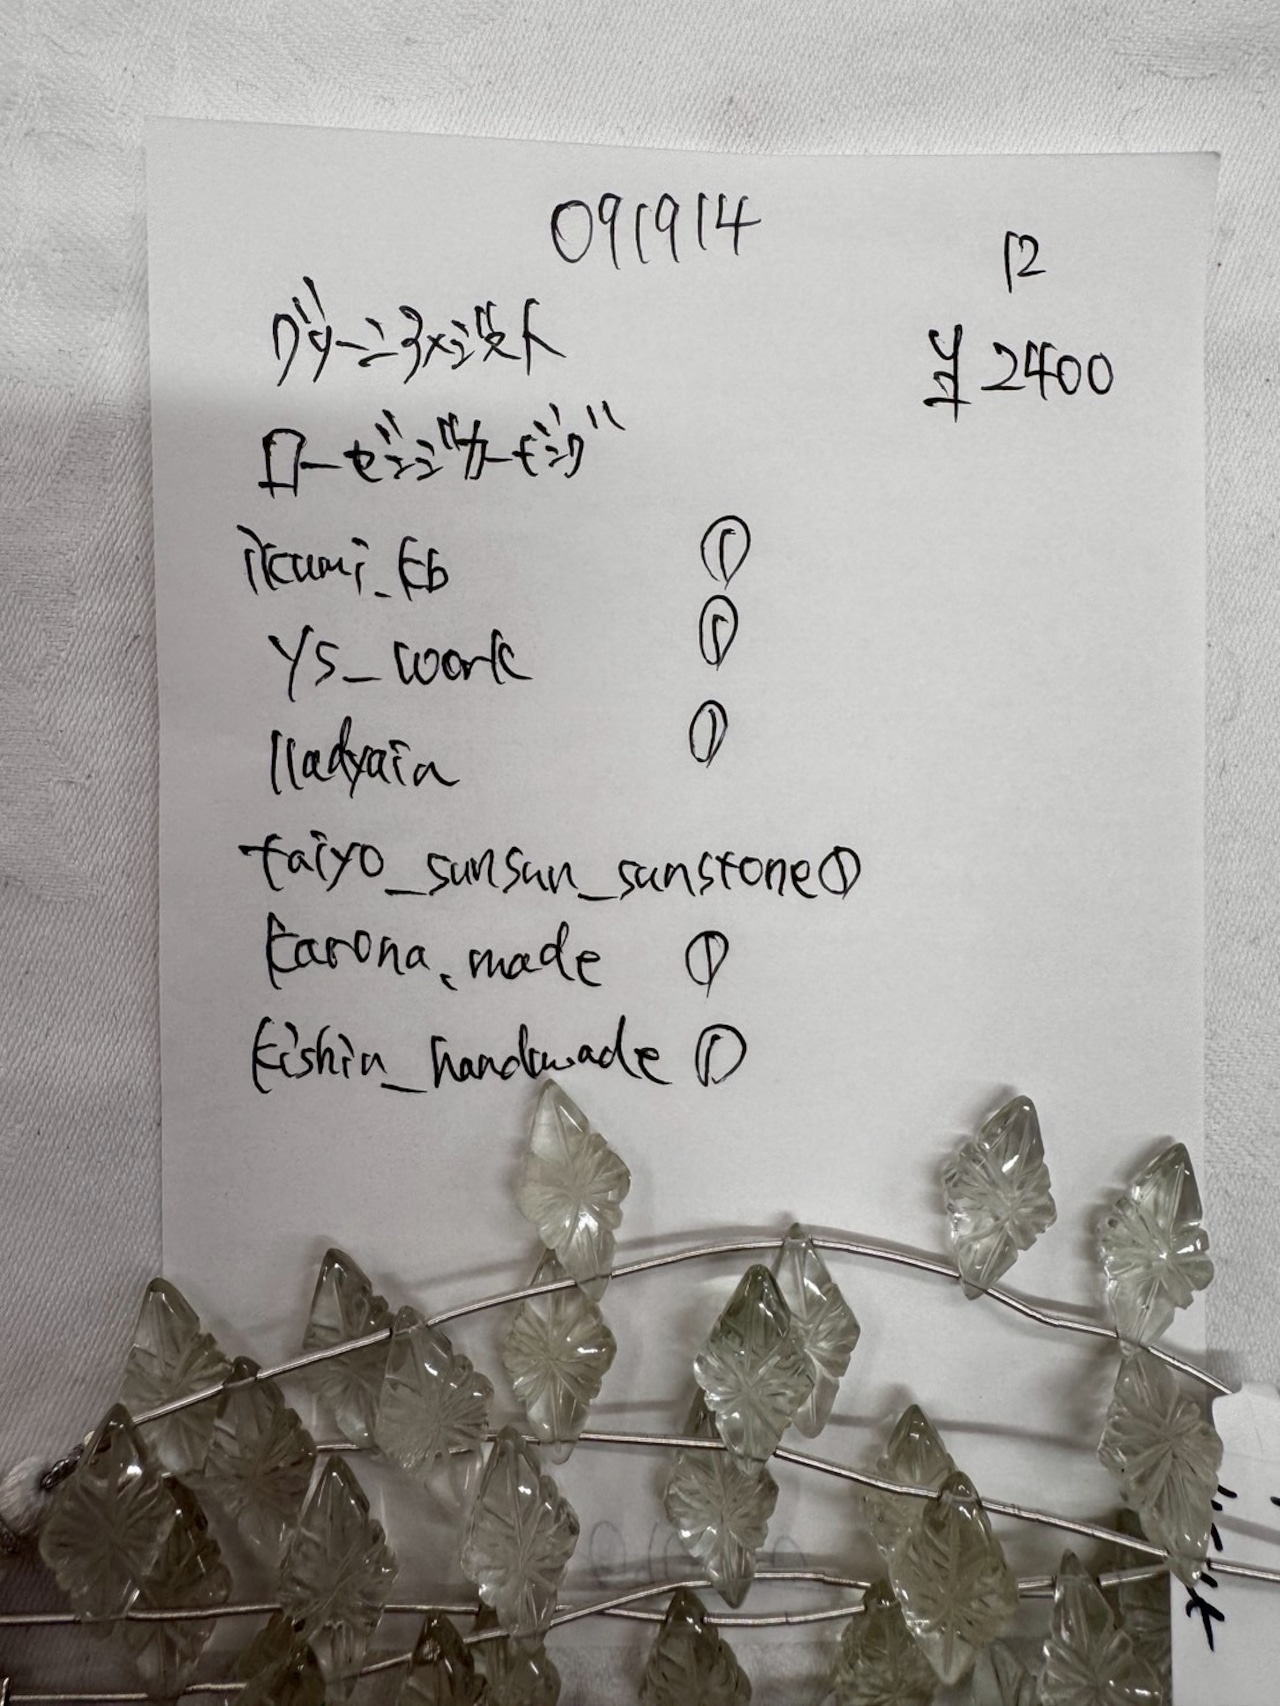 091914
12
グリーンアメジスト
¥2400
ローゼンジカービング
ikumi_kb ①
ys_work ①
lladyain ①
taiyo_sunsun_sunstone ①
karona.made ①
kishin_handmade ①